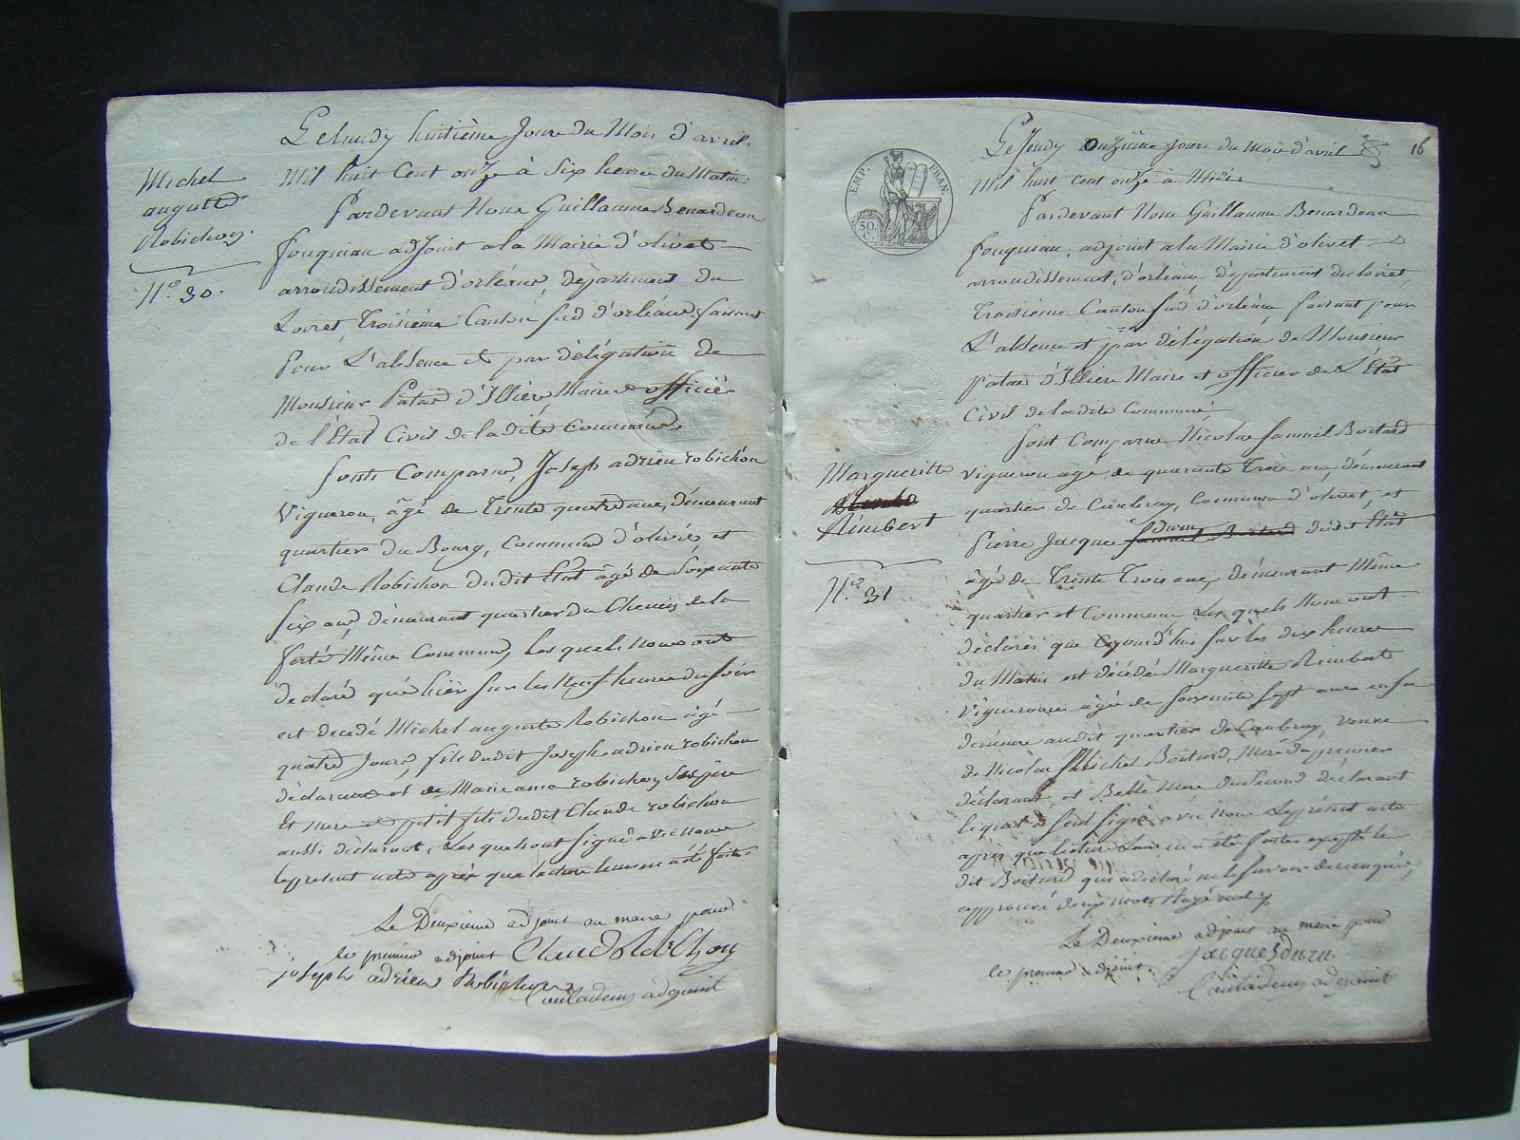 Michel
auguste
Robichon.
N.º 30.
Le lundy huitième Jour du Mois d'avril
Mil huit Cent onze à Six heure du Matin
Pardevant Nous Guillaume Benardeau
fouqueau adjoint a la Mairie d'olivet
arrondissement d'orléans, département du
Loiret, Troisième Canton sud d'orléans, faisant
Pour L'absence et par délégation de
Monsieur Patas d'Illiers Maire officier
de l'État Civil de la dite Commune
sont Comparus, Joseph adrien robichon
Vigneron, âgé de Trente quatre ans, demeurant
quartier du Bourg, Commune d'olivet, et
Claude Robichon dudit État âgé de Soixante
Six ans, demeurant quartier du Chemin de la
ferté Même Commune, Les quels nous ont
déclaré qu'hier sur les Neuf heures du Soir
est décédé Michel auguste Robichon âgé
quatre Jours, fils dudit Joseph adrien robichon
déclarant et de Marie anne robichon, Ses père
et mere et petit fils dudit Claude robichon
aussi déclarant, Les quels ont signé avec nous
le présent acte après que lecture leur en a été faite.
Le Deuxieme adjoint au maire pour
le premier adjoint Claude Robichon
joseph adrien Robichon
adjoint
EMP. FRAN.
50. C.
16
Marguerite
Rimbert
N.º 31
Le Jeudy onzième Jour du mois d'avril
Mil huit cent onze à Midi
Pardevant Nous Guillaume Benardeau
fouqueau, adjoint a la Mairie d'olivet
arrondissement, d'orléans département du loiret,
Troisième Canton sud d'orléans faisant pour
L'absence et par délégation de Monsieur
patas d'Illiers Maire et officier de L'État
Civil de la dite Commune,
sont Comparus Nicolas samuel Boitard
vigneron agé de quarante Trois ans, demeurant
quartier de Commune d'olivet, et
duru
Pierre Jacque samuel Boitard dudit État
âgé de Trente Trois ans, demeurant Même
quartier et Commune Les quels Nous ont
déclarés que Cejourd'hui sur les dix heures
du Matin est décédé Marguerite Rimbert
Vigneronne âgée de soixante sept ans en sa
demeure audit quartier de veuve
de Nicolas Michel Boitard, Mère du premier
déclarant, et Belle Mere du Second déclarant
lequel a seul signé avec Nous Le présent acte
après que lecture Leur en a été faite excepté le
dit Boitard qui a déclaré ne le savoir de ce enquis,
approuvé mots Rayé nul
Le Deuxieme adjoint au maire pour
le premier adjoint. jacques duru
adjoint